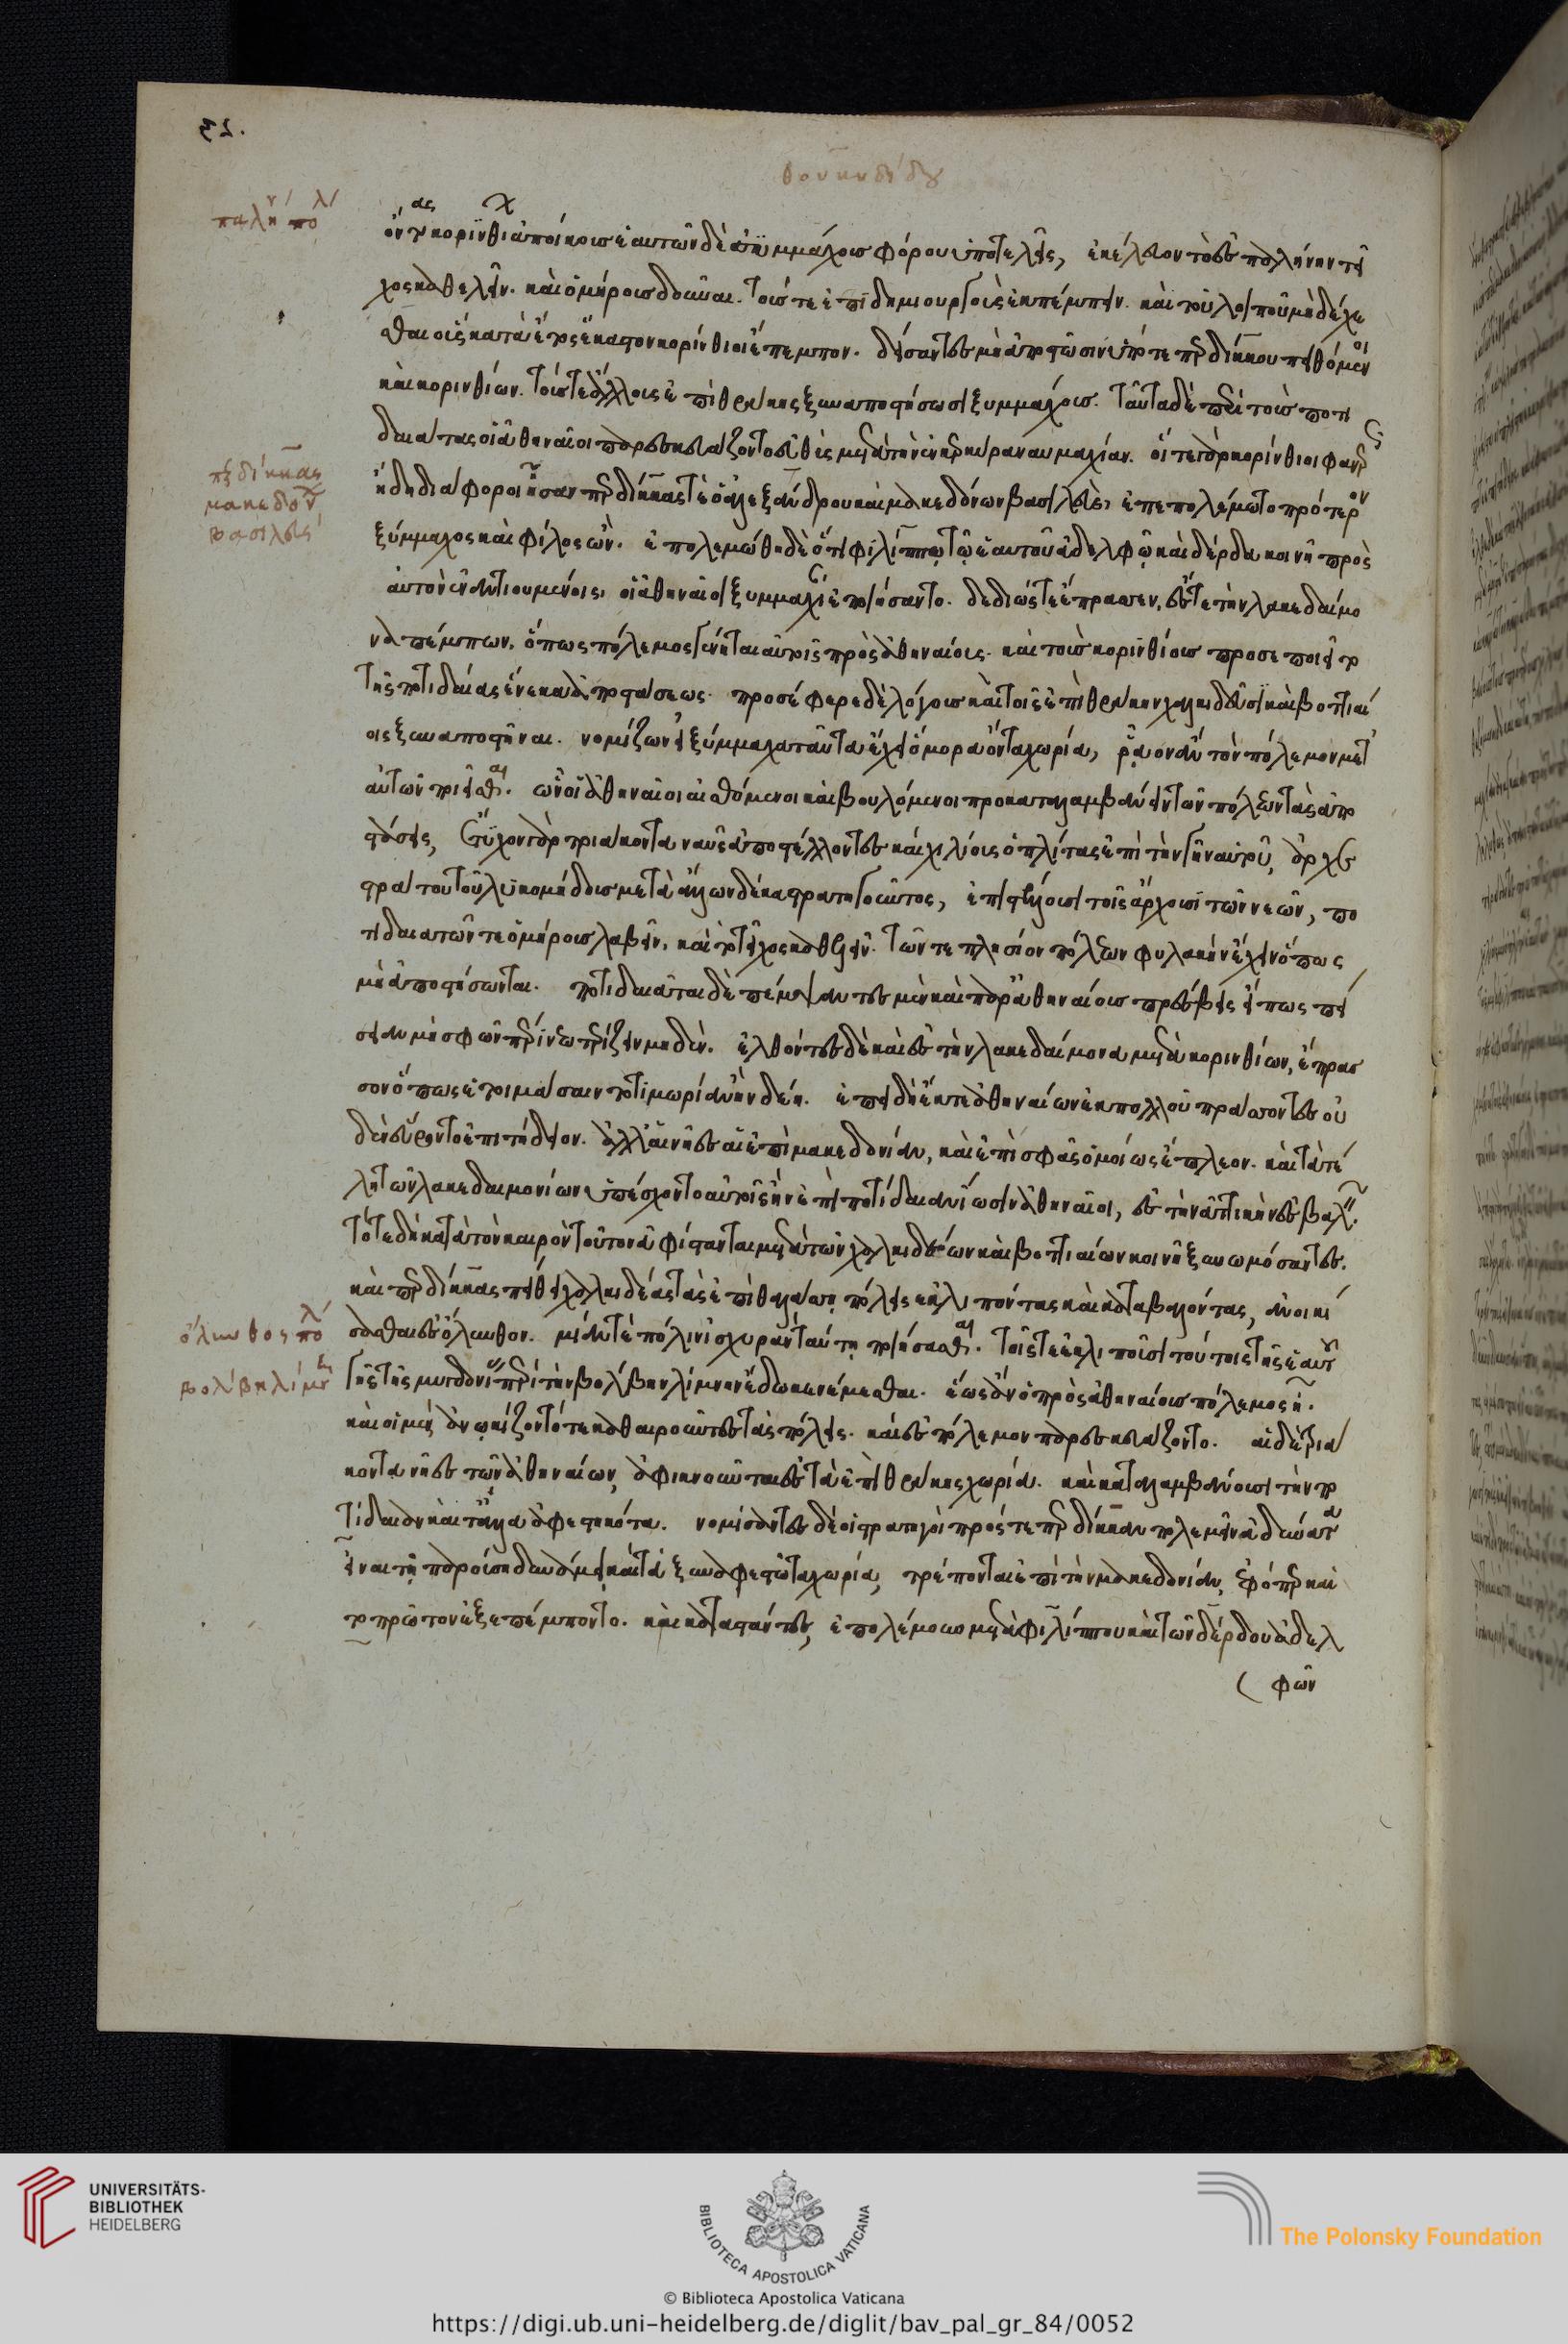 θουκυδίδου
παλήνη πόλις
ὄντας κορινθίων ἀποίκους ἑαυτῶν δὲ ξυμμάχους φόρου ὑποτελεῖς, ἐκέλευον τὸ ἐς παλλήνην τεῖ
χος καθελεῖν. καὶ ὁμήρους δοῦναι. τούς τε ἐπιδημιουργοὺς ἐκπέμπειν. καὶ τοῦ λοιποῦ μὴ δέχε
σθαι οὓς κατὰ ἔτος ἕκαστον κορίνθιοι ἔπεμπον. δείσαντες μὴ ἀποστῶσιν ὑπό τε περδίκκου πειθόμενοι
καὶ κορινθίων. τούς τε ἄλλους ἐπὶ θράκης ξυναποστήσωσι ξυμμάχους. ταῦτα δὲ περὶ τοὺς ποτι
δαιάτας οἱ ἀθηναῖοι παρεσκευάζοντο εὐθὺς μετὰ τὴν ἐν κερκύρα ναυμαχίαν. οἵ τε γὰρ κορίνθιοι φανερῶς
περδίκκας
μακεδόνων
βασιλεύς
ἤδη διάφοροι ἦσαν περδίκκας τὲ ὁ ἀλεξάνδρου καὶ μακεδόνων βασιλεὺς, ἐπεπολέμωτο πρότερον
ξύμμαχος καὶ φίλος ὤν. ἐπολεμώθη δὲ ὅτι φιλίππῳ τῷ ἑαυτοῦ ἀδελφῷ καὶ δέρδα κοινῆ πρὸς
αὐτὸν ἐναντιουμένοις, οἱ ἀθηναῖοι ξυμμαχίαν ἐποιήσαντο. δεδιώς τε ἔπρασσεν, ἔς τε τὴν λακεδαίμο
να πέμπων, ὅπως πόλεμος γένηται αὐτοῖς πρὸς ἀθηναίους. καὶ τοὺς κορινθίους προσεποιεῖτο
τῆς ποτιδαίας ἕνεκα ἀποστάσεως. προσέφερε δὲ λόγους καὶ τοῖς ἐπὶ θράκην χαλκιδεῦσι καὶ βοττιαί
οις ξυναποστῆναι. νομίζων εἰ ξύμμαχα ταῦτα ἔχει ὅμορα ὄντα χωρία, ῥᾷον ἂν τὸν πόλεμον μετ'
αὐτῶν ποιεῖσθαι. ὧν οἱ ἀθηναῖοι αἰσθόμενοι καὶ βουλόμενοι προκαταλαμβάνειν τῶν πόλεων τὰς ἀπο
στάσεις, ἔτυχον γὰρ τριάκοντα ναῦς ἀποστέλλοντες καὶ χιλίους ὁπλίτας ἐπὶ τὴν γῆν αὐτοῦ, ἀρχε
στράτου τοῦ λυκομήδους μετὰ ἄλλων δέκα στρατηγοῦντος, ἐπιστέλλουσι τοῖς ἄρχουσι τῶν νεῶν, πο
τιδαιατῶν τε ὁμήρους λαβεῖν, καὶ τὸ τεῖχος καθελεῖν. τῶν τε πλησίον πόλεων φυλακὴν ἔχειν ὅπως
μὴ ἀποστήσωνται. ποτιδαιᾶται δὲ πέμψαντες μὲν καὶ παρὰ ἀθηναίους πρέσβεις εἴ πως πεί
σειαν μὴ σφῶν πέρι νεωτερίζειν μηδέν. ἐλθόντες δὲ καὶ ἐς τὴν λακεδαίμονα μετὰ κορινθίων, ἔπρασ
σον ὅπως ἑτοιμάσαιντο τιμωρίαν ἢν δέη. ἐπειδὴ ἔκ τε ἀθηναίων ἐκ πολλοῦ πράσσοντες οὐ
δὲν εὕροντο ἐπιτήδειον. ἀλλ' αἱ νῆες αἱ ἐπὶ μακεδονίαν, καὶ ἐπὶ σφᾶς ὁμοίως ἔπλεον. καὶ τὰ τέ
λη τῶν λακεδαιμονίων ὑπέσχοντο αὐτοῖς ἢν ἐπὶ ποτίδαιαν ἴωσιν ἀθηναῖοι, ἐς τὴν ἀττικὴν ἐσβαλεῖν.
τότε δὴ κατὰ τὸν καιρὸν τοῦτον ἀφίστανται μετὰ τῶν χαλκιδέων καὶ βοττιαίων κοινῆ ξυνωμόσαντες.
καὶ περδίκκας πείθει χαλκιδέας τὰς ἐπὶ θαλάσση πόλεις ἐκλιπόντας καὶ καταβαλόντας, ἀνοικί
όλυνθος πόλις
σασθαι ἐς ὄλυνθον. μίαν τὲ πόλιν ἰσχυρὰν ταύτη ποιήσασθαι. τοῖς τε ἐκλιποῦσι τούτοις τῆς ἑαυτοῦ
βολβη λίμνη
γῆς τῆς μυγδονίας περὶ τὴν βόλβην λίμνην ἔδωκε νέμεσθαι. ἕως ἂν ὁ πρὸς ἀθηναίους πόλεμος ῆ.
καὶ οἱ μὲν ἀνῳκίζοντό τε καθαιροῦντες τὰς πόλεις. καὶ ἐς πόλεμον παρεσκευάζοντο. αἱ δὲ τριά
κοντα νῆες τῶν ἀθηναίων, ἀφικνοῦνται ἐς τὰ ἐπὶ θράκης χωρία. καὶ καταλαμβάνουσι τὴν πο
τίδαιαν καὶ τἄλλα ἀφεστηκότα. νομίσαντες δὲ οἱ στρατηγοὶ πρός τε περδίκκαν πολεμεῖν ἀδύνατα
εἶναι τῆ παρούση δυνάμει καὶ τὰ ξυναφεστῶτα χωρία, τρέπονται ἐπὶ τὴν μακεδονίαν, ἐφ' ὅπερ καὶ
τὸ πρῶτον ἐξεπέμποντο. καὶ καταστάντες, ἐπολέμουν μετὰ φιλίππου καὶ τῶν δέρδου ἀδελ
φῶν
UNIVERSITÄTS-
BIBLIOTHEK
HEIDELBERG
BIBLIOTECA APOSTOLICA VATICANA
The Polonsky Foundation
© Biblioteca Apostolica Vaticana
https://digi.ub.uni-heidelberg.de/diglit/bav_pal_gr_84/0052